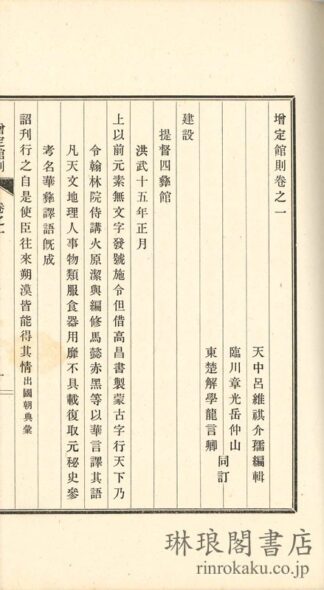 增定館則卷之一
天中呂維祺介孺編輯
臨川章光岳仲山
同訂
東楚解學龍言卿
建設
提督四彝館
洪武十五年正月
上以前元素無文字發號施令但借高昌書製蒙古字行天下乃
令翰林院侍講火原潔與編修馬懿赤黑等以華言譯其語
凡天文地理人事物類服食器用靡不具載復取元秘史參
考名華彝譯語既成
詔刊行之自是使臣往來朔漠皆能得其情出國朝典彙
增定館則
卷之一
一
琳琅閣書店
rinrokaku.co.jp